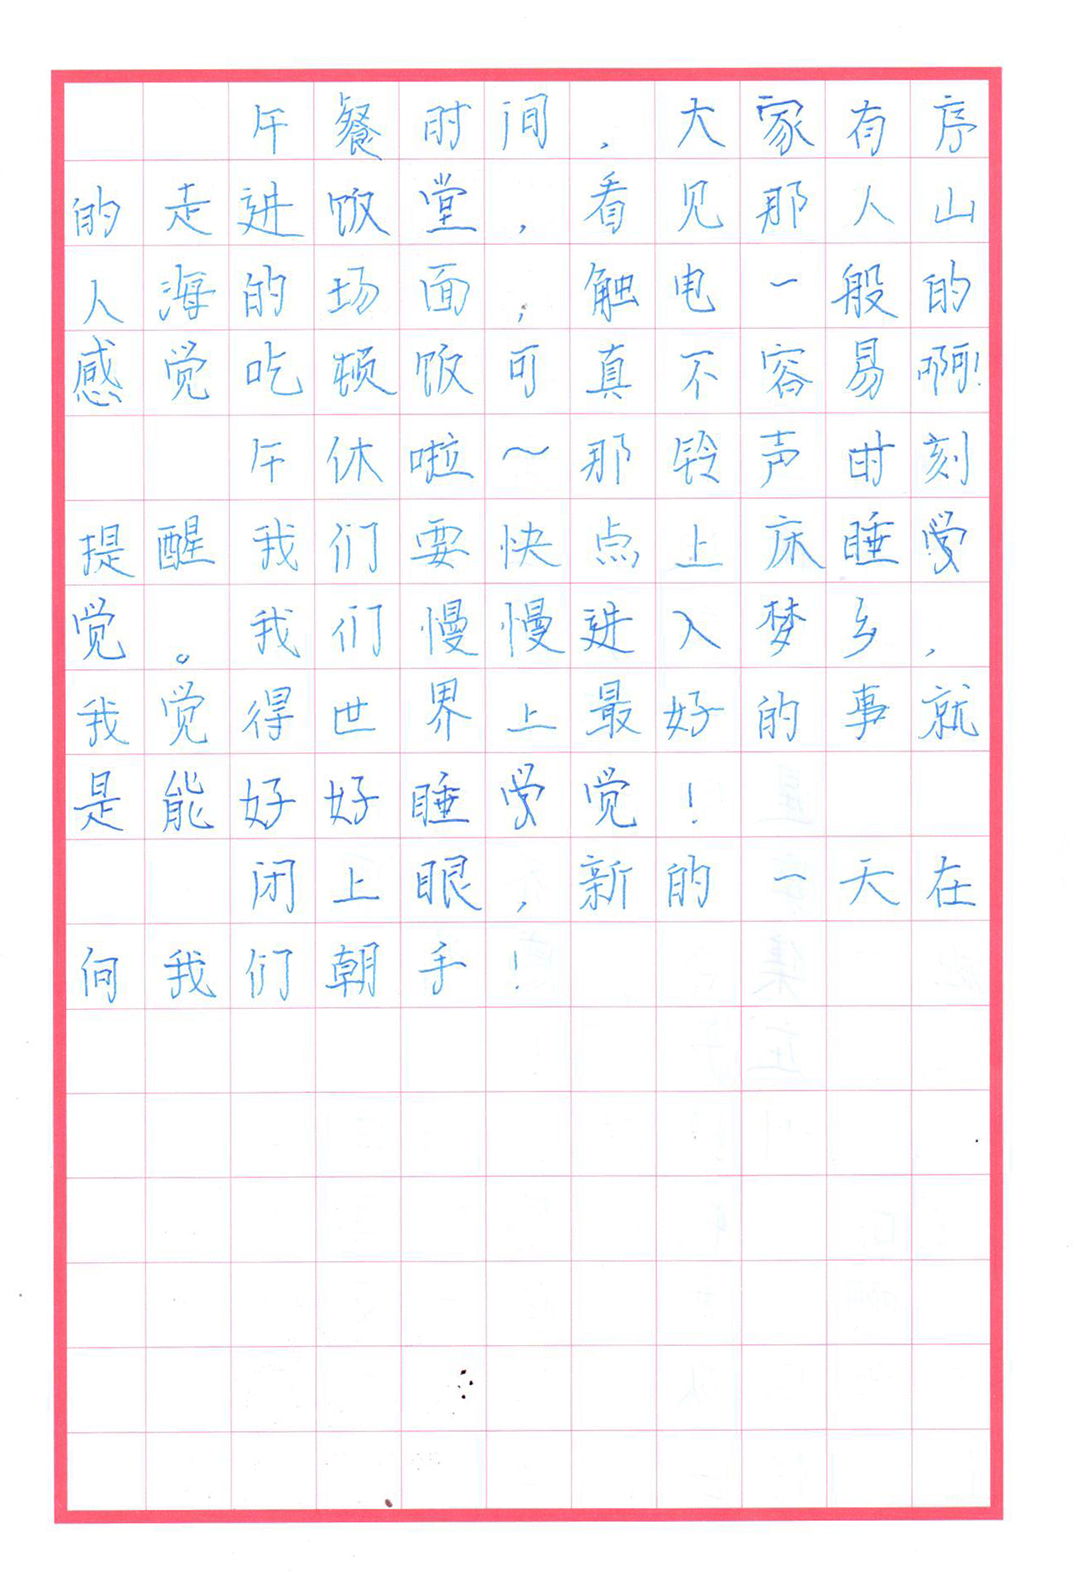 午餐时间，大家有序
的走进饭堂，看见那人山
人海的场面；触电一般的
感觉吃顿饭可真不容易啊!
午休啦～那铃声时刻
提醒我们要快点上床睡觉
觉。我们慢慢进入梦乡，
我觉得世界上最好的事就
是能好好睡觉觉！
闭上眼，新的一天在
向我们朝手！